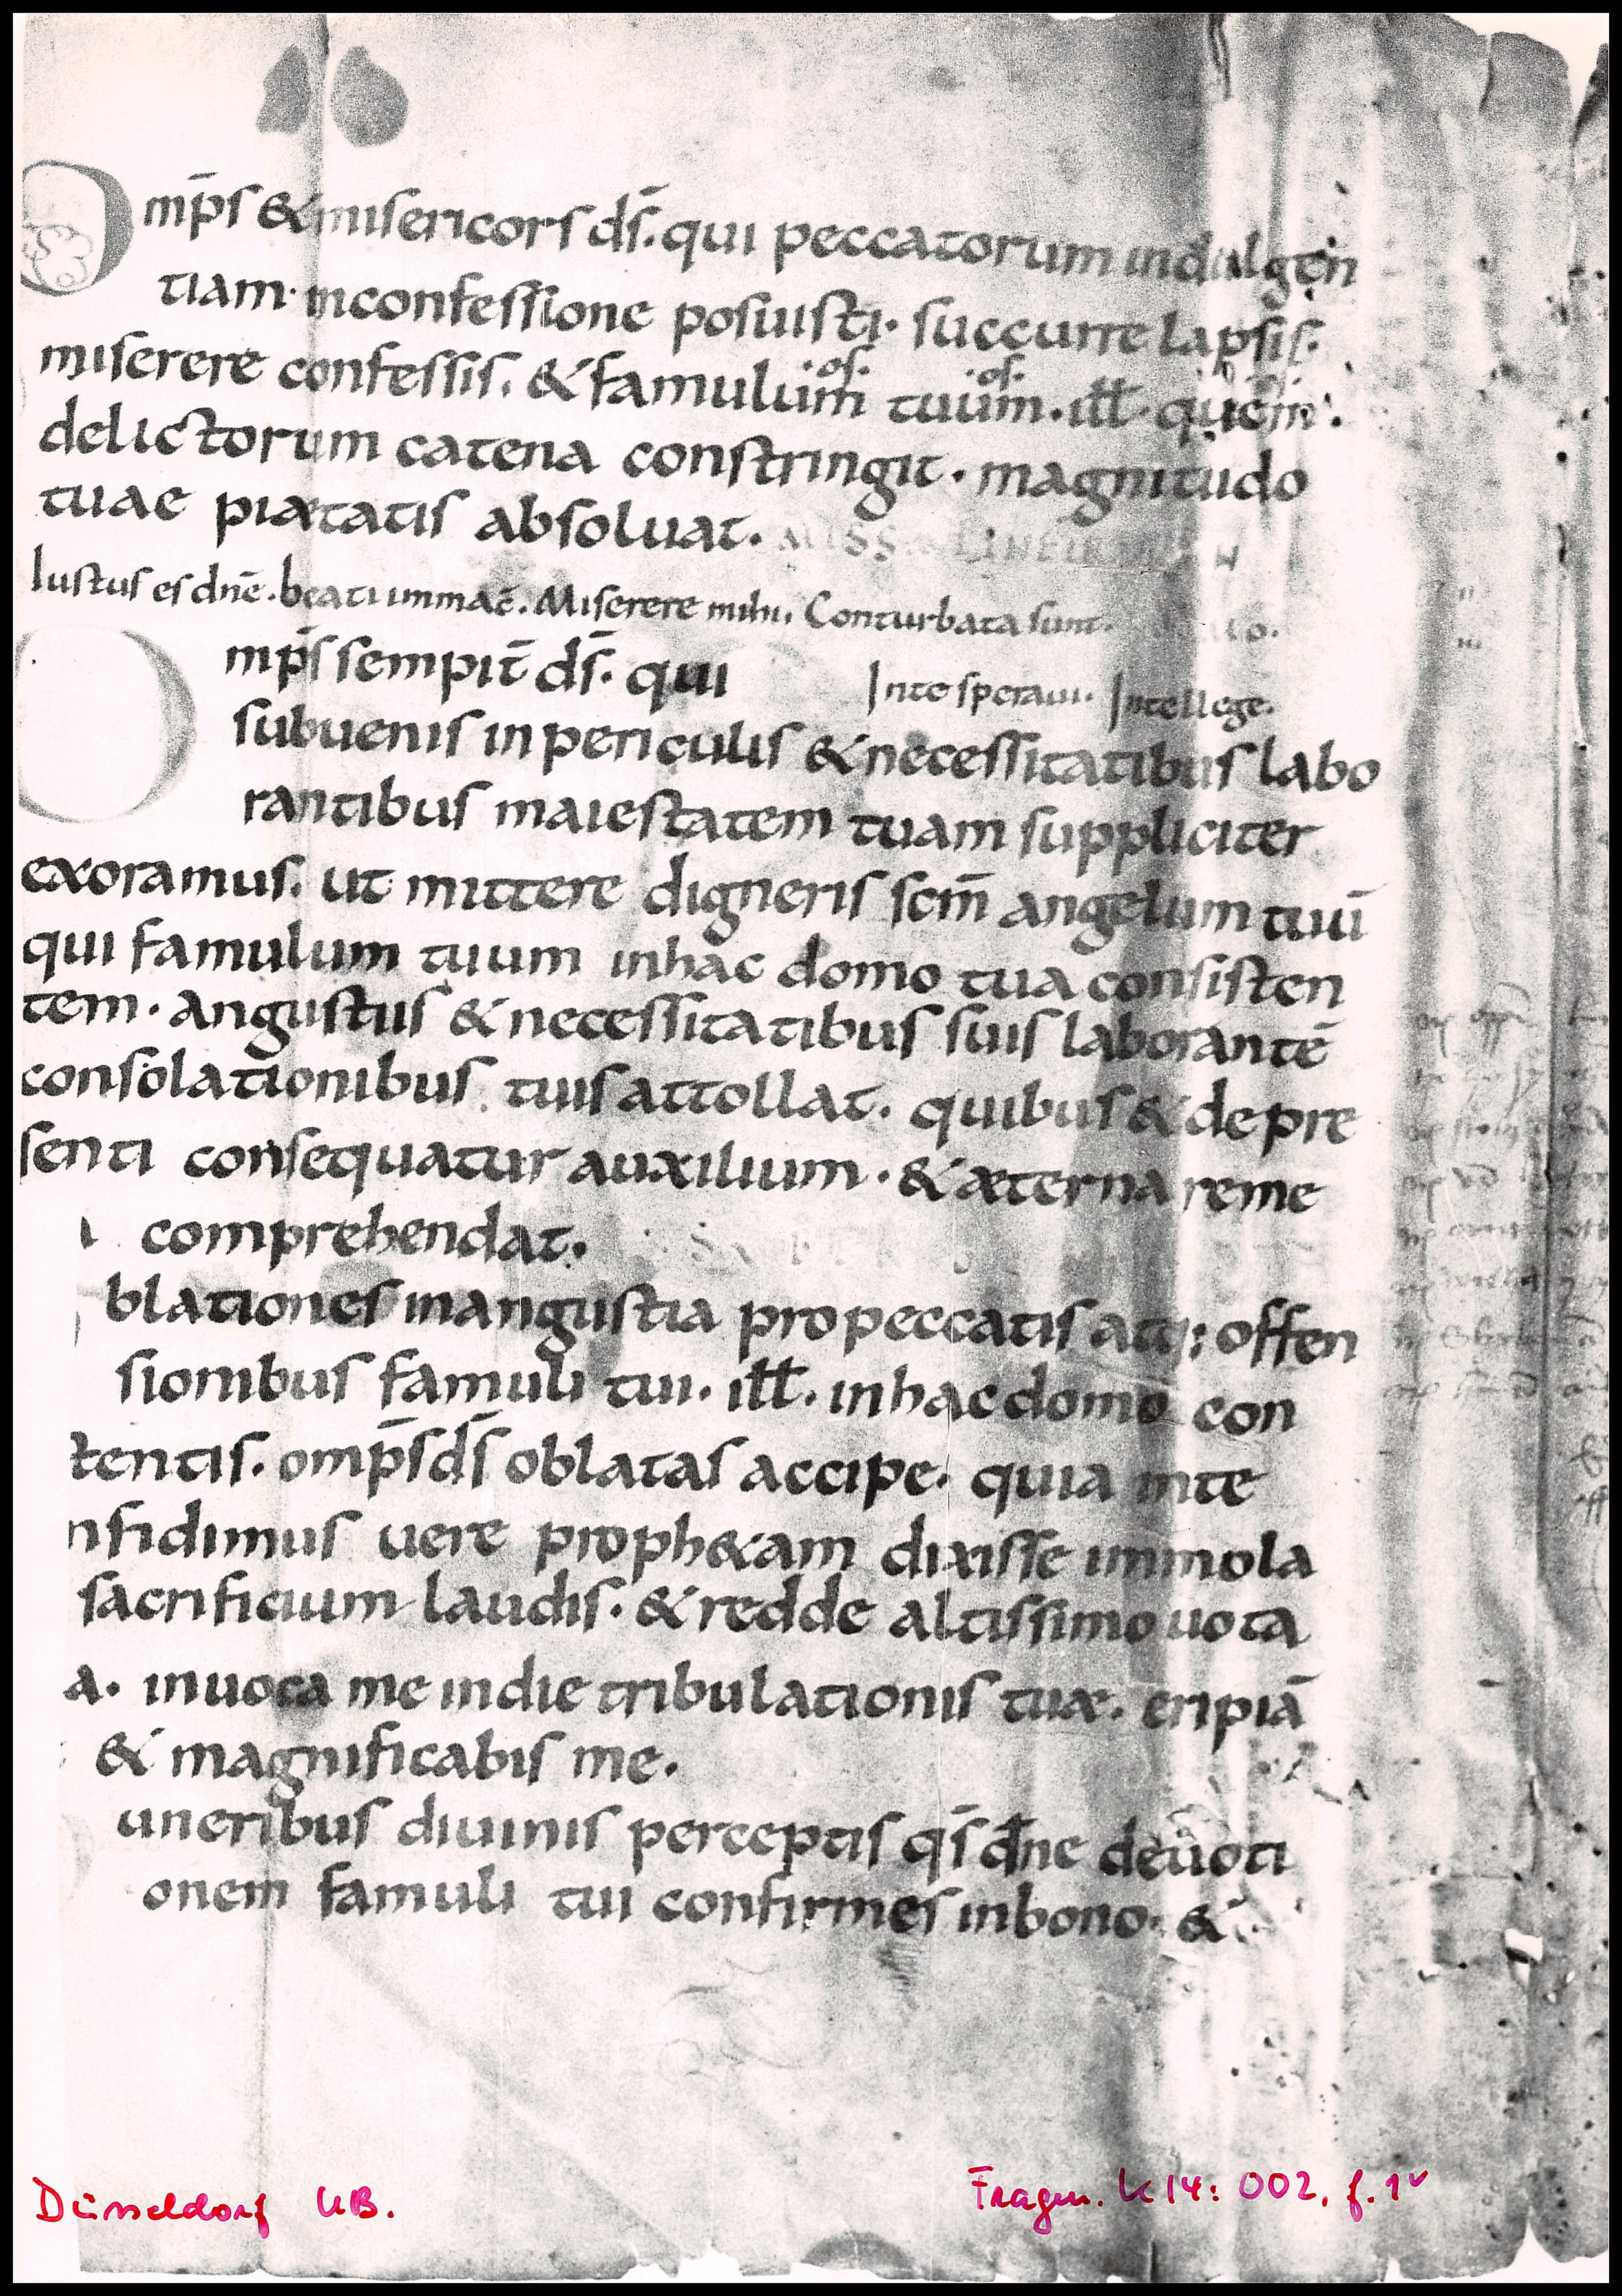 Omp̄s & misericors ds̄. qui peccatorum indulgen
tiam. inconfessione posuisti. succurre lapsis.
.os. .os.
miserere confessis. & famulum tuum. ill̄. quem.
delictorum catena constringit. magnitudo
tuae piætatis absoluat. MISSA
Iustus es dnē. beati immac̄. Miserere mihi. Conturbata sunt.
Omp̄s sempit̄ ds̄. qui
Inte speraui. Intellege.
subuenis in periculis & necessitatibus labo
rantibus maiestatem tuam suppliciter
exoramus. ut mittere digneris scm̄ angelum tuū
qui famulum tuum inhac domo tua consisten
tem. angustiis & necessitatibus suis laborantē
consolationibus tuis attollat. quibus & depre
senti consequatur auxilium. & æterna reme
comprehendat.
blationes inangustia propeccatis atq; offen
sionibus famuli tui. ill̄. inhac domo con
tentis. omp̄s ds̄ oblatas accipe. quia inte
nfidimus uere proph&am dixisse immola
sacrificium laudis. & redde altissimo uota
a. inuoca me indie tribulationis tuæ. eripiā
& magnificabis me.
uneribus diuinis perceptis qs̄ dn̄e deuoti
onem famuli tui confirmes inbono. &
Düsseldorf UB.
Fragm. K14: 002, f. 1v